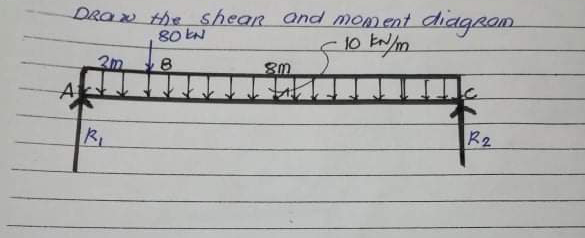 Draw the shear and moment diagram
80 kN
10 kN/m
2m B 8m
A C
R1 R2